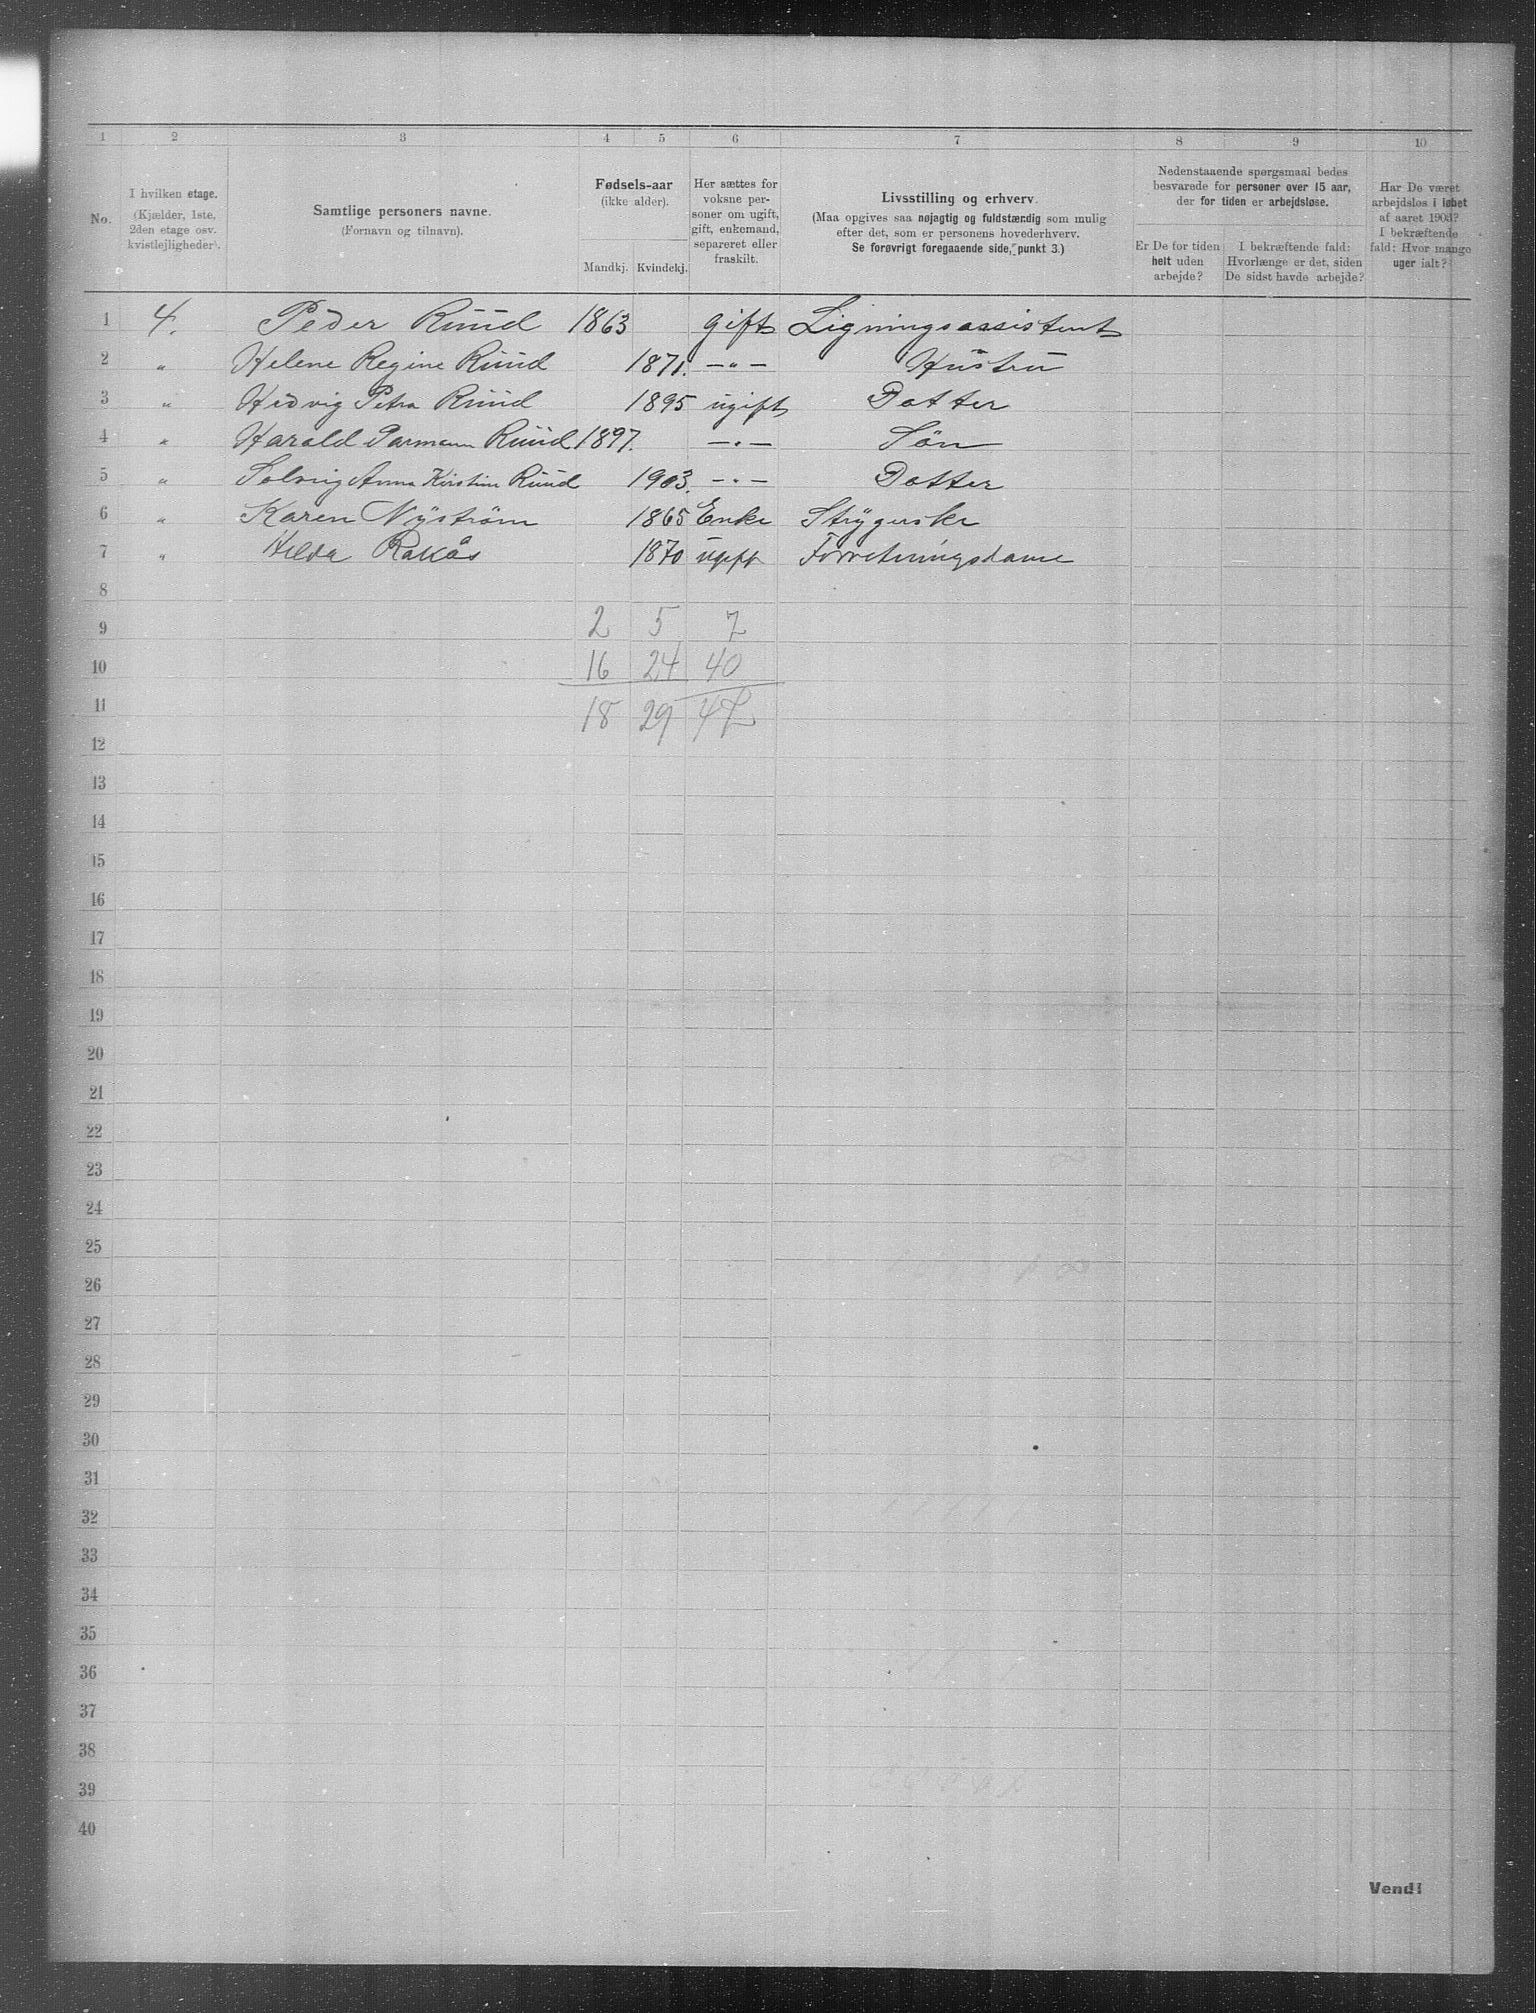 1 2 3 4 5 6 7 8 9 10
No.
I hvilken etage.
(Kjælder, 1ste,
2den etage osv.
kvistlejligheder).
Samtlige personers navne.
(Fornavn og tilnavn).
Fødsels-aar
(ikke alder).
Mandkj. Kvindekj.
Her sættes for
voksne per-
soner om ugift,
gift, enkemand,
separeret eller
fraskilt.
Livsstilling og erhverv.
(Maa opgives saa nøjagtig og fuldstændig som mulig
efter det, som er personens hovederhverv.
Se forøvrigt foregaaende side, punkt 3.)
Nedenstaaende spørgsmaal bedes
besvarede for personer over 15 aar,
der for tiden er arbejdsløse.
Er De for tiden
helt uden
arbejde?
I bekræftende fald:
Hvorlænge er det, siden
De sidst havde arbejde?
Har De været
arbejdsløs i løbet
af aaret 1903?
I bekræftende
fald: Hvor mange
uger ialt?
1 4. Peder Ruud 1863 gift Ligningsassistent
2 " Helene Regine Ruud 1871. —"— Hustru
3 " Hedvig Petra Ruud 1895 ugift Datter
4 " Harald Ruud 1897. —"— Søn
5 " Solveig Anna Kirstine Ruud 1903. —"— Datter
6 " Karen Nyström 1865 Enke Strygerske
7 " Hilda Rakås 1870 ugift Forretningsdame
8
9 2 5 7
10 16 24 40
11 18 29 47
12
13
14
15
16
17
18
19
20
21
22
23
24
25
26
27
28
29
30
31
32
33
34
35
36
37
38
39
40
Vend!